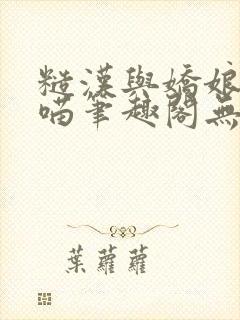 糙漢與嬌娘
喵筆趣閣無
葉蘿蘿